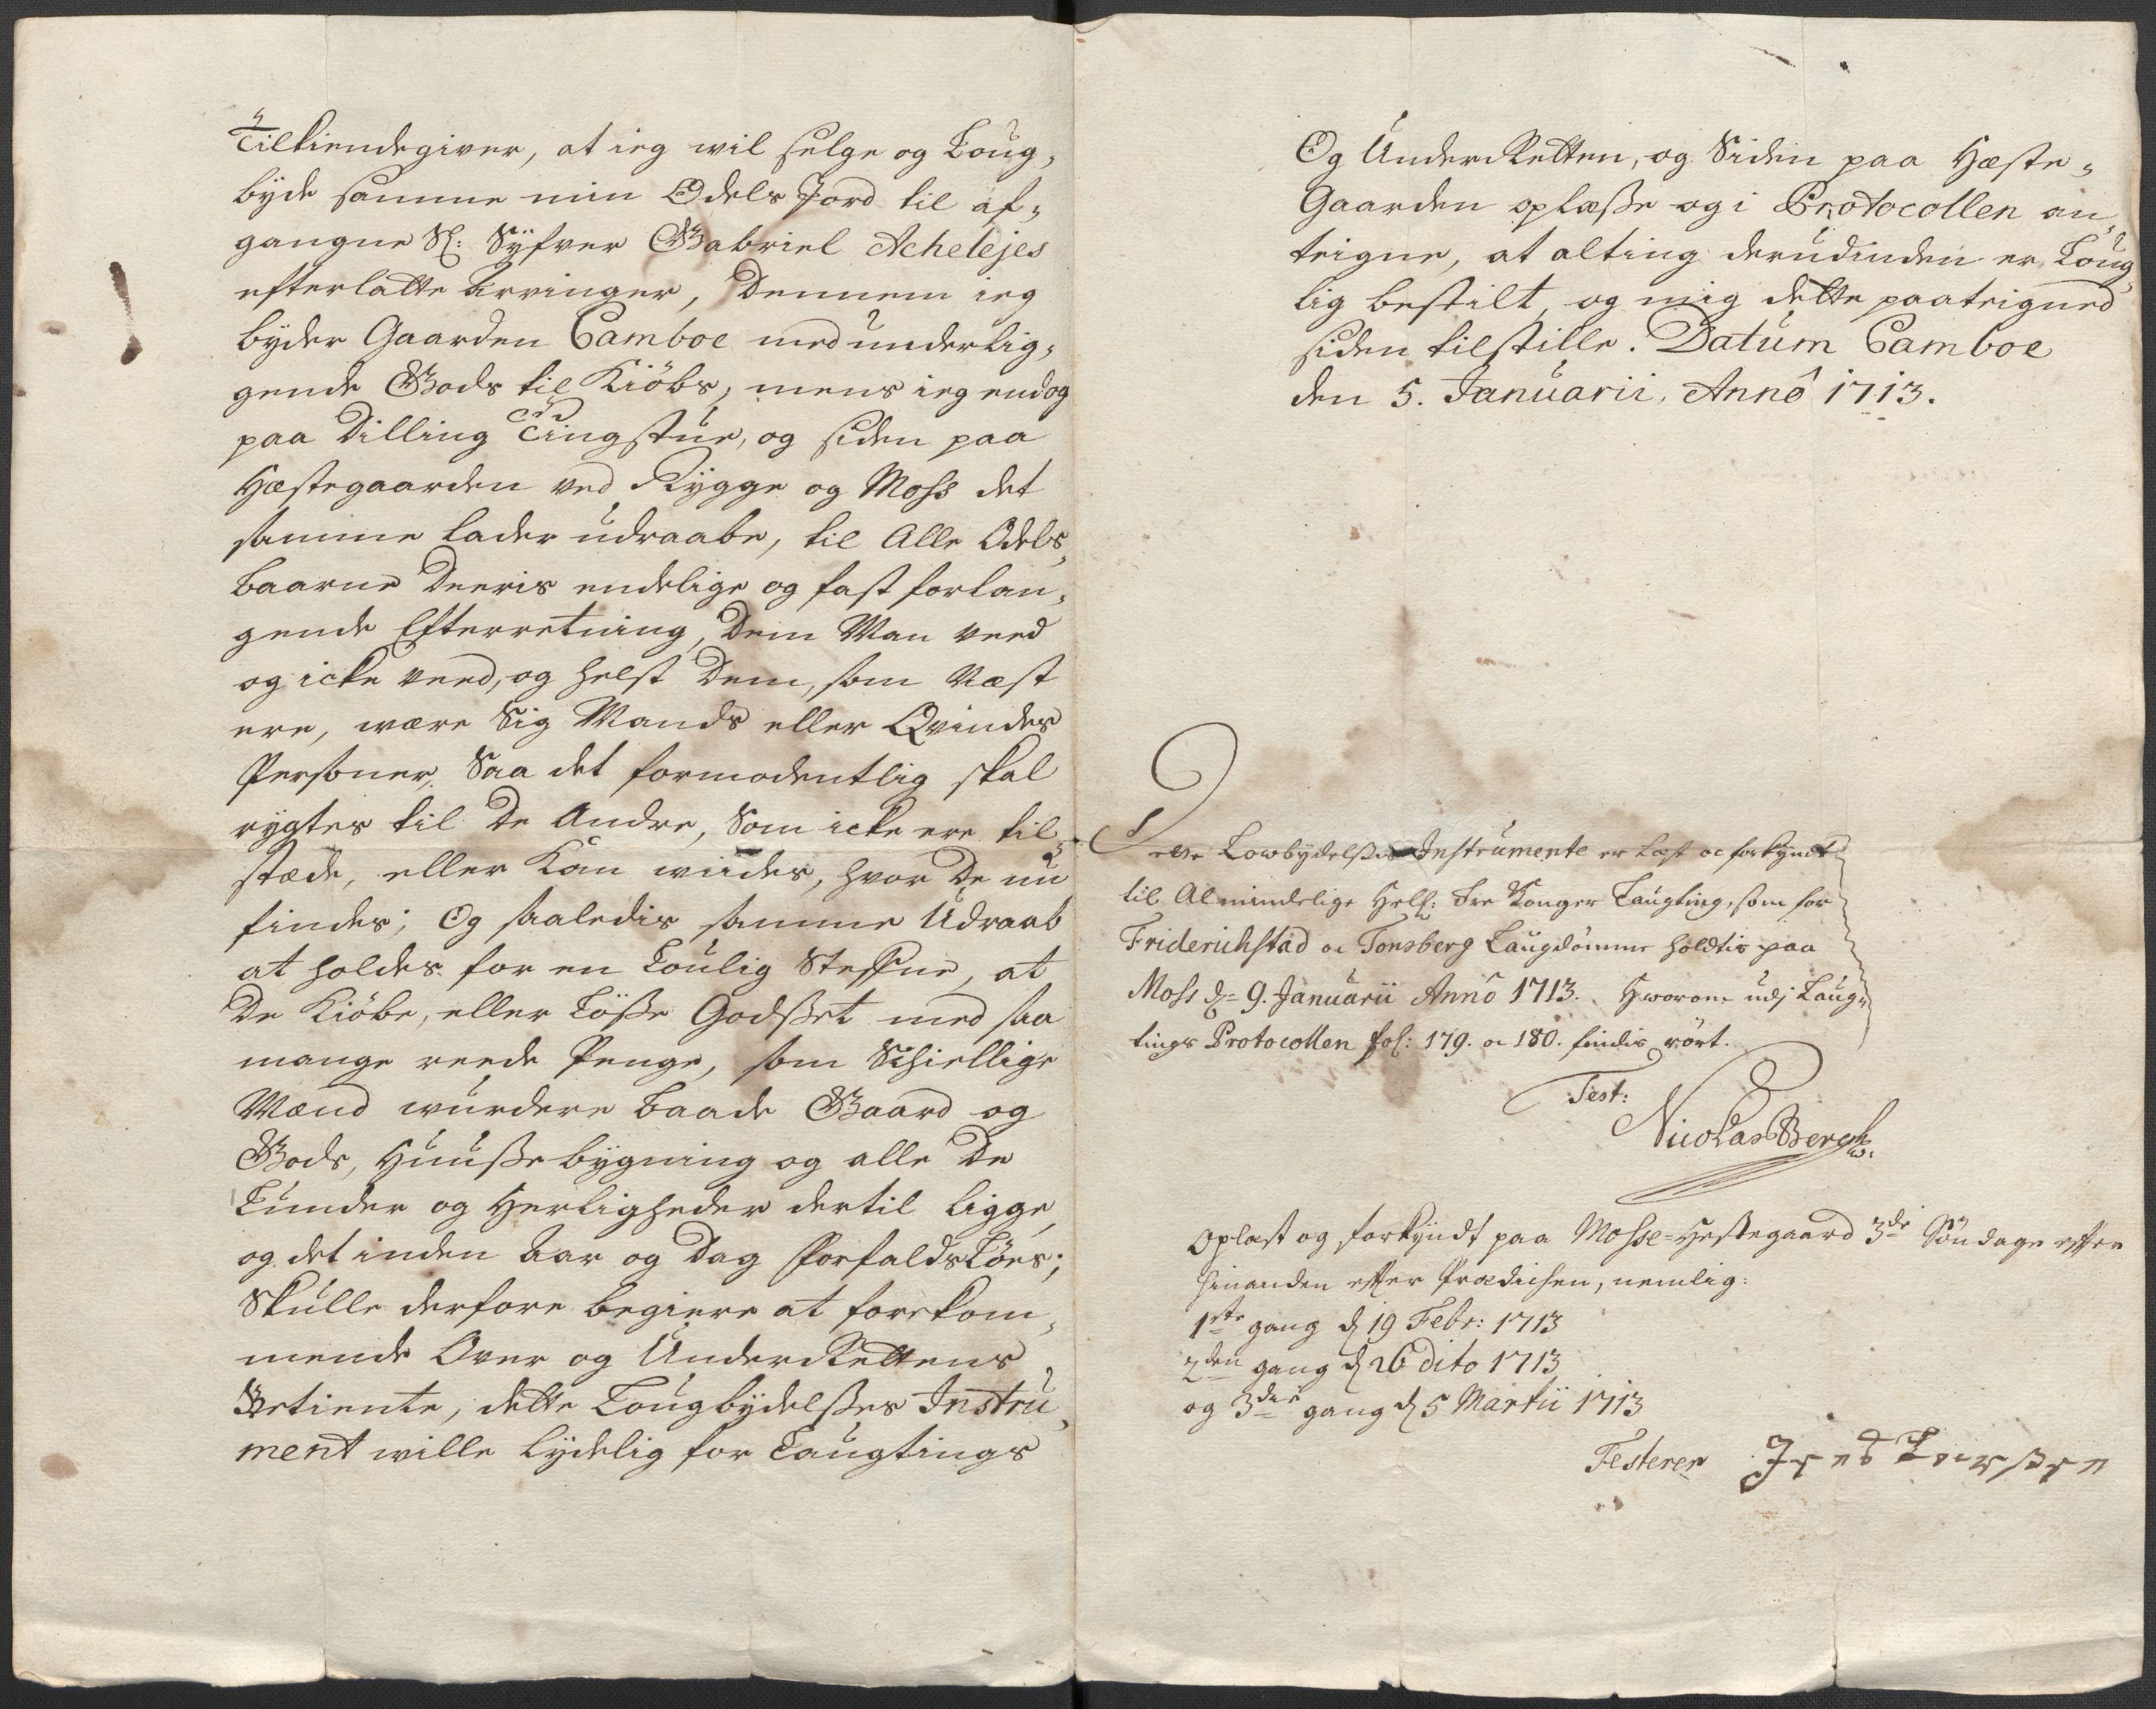 Tilkiendegiver, at ieg vil selge og Loug,
byde samme min Odels Jord til af,
gangne Sl: Syfver Gabriel Achelejes
efterlatte Arvinger, Dennem ieg
byder Gaarden Camboe med underlig,
gende Gods til Kiöbs, mens ieg endog
paa Dilling Tingstue, og siden paa
Hæstegaarden ved Rygge og Moss det
samme lader udraabe, til Alle Odels,
baarne Deeris endelige og fast forlan,
gende Efterretning, Dem Man veed
og icke veed, og helst Dem, som Næst
ere, være Sig Mands eller Qvindes
Personer, Saa det formodentlig skal
rygtes til De Andre, Som icke ere til,
stæde, eller Kan viides, hvor De nu
findes; Og saaledis samme Udraab
at holdes for en Loulig Steffne, at
De Kiöbe, eller Lösse Godsset med saa
mange reede Penge, som Schiellige
Mænd wurdere baade Gaard og
Gods, Huussebygning og alle De
Lunder og Herligheder dertil ligge,
og det inden Aar og Dag forfaldslöes;
Skulle derfore begiere at forekom,
mende Over og UnderRettens
Betiente, dette Lougbydelsses Instru,
ment wille lydelig for Laugtings
Og UnderRetten, og Siden paa Hæste,
Gaarden oplæsse og i Protocollen an,
teigne, at alting derudinden er Loug,
lig bestilt, og mig dette paateigned
siden tilstille. Datum Camboe
den 5. Januarii, Annô 1713.
Dette Lowbydelsses Instrumente er læst oc forkyndt
til Almindelige Hell: Tre Konger Laugting, som for
Friderichstad oc Tonsberg Laugdömme holdtis paa
Moss d= 9. Januarii Annô 1713. Hworom udj Laug,
tings Protocollen fol: 179. oc 180. findis rört.
Test:
Nicolas Bergh
Oplæst og forkyndt paa Mosse=Hestegaard 3de Söndage efter
hinanden efter Prædichen, nemlig:
1ste gang d 19 Febr: 1713
2den gang d 26 dito 1713
og 3die gang d 5 Martii 1713
Testerer